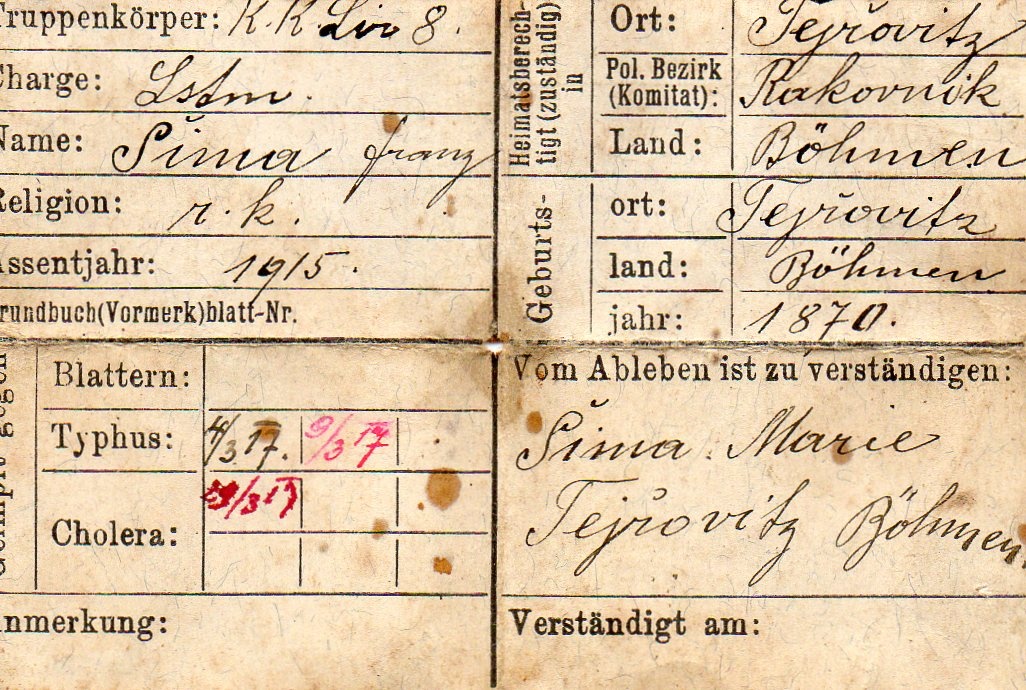 Truppenkörper: K.K. Lir 8.
Charge: Lstm.
Name: Šima Franz
Religion: r. k.
Assentjahr: 1915.
Grundbuch(Vormerk)blatt-Nr.
Heimatsberech-
tigt (zuständig)
in
Ort: Tejřovitz
Pol. Bezirk
(Komitat): Rakovnik
Land: Böhmen
Geburts-
ort: Tejřovitz
land: Böhmen
jahr: 1870.
Geimpft gegen
Blattern:
Typhus: 4/3 17. 9/3 17
Cholera: /3 17
Vom Ableben ist zu verständigen:
Šima Marie
Tejřovitz Böhmen
Anmerkung:
Verständigt am: